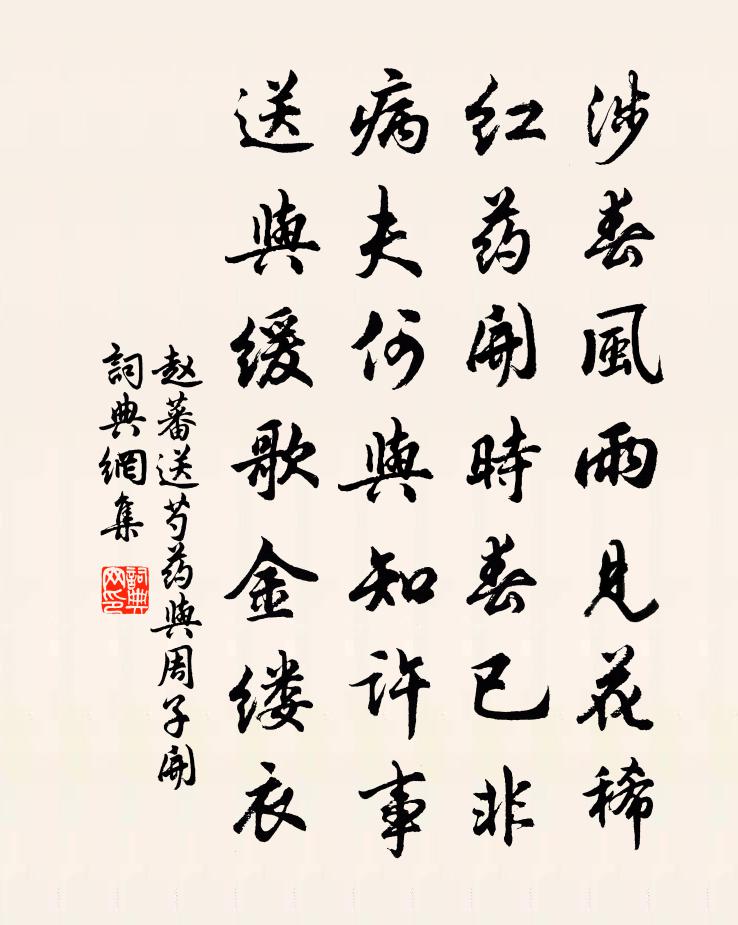 涉春風雨見花稀
红药開時春已非
病夫何與知许事
送與缓歌金缕衣
赵蕃送芍药與周子開
詞典網集
詞典网印